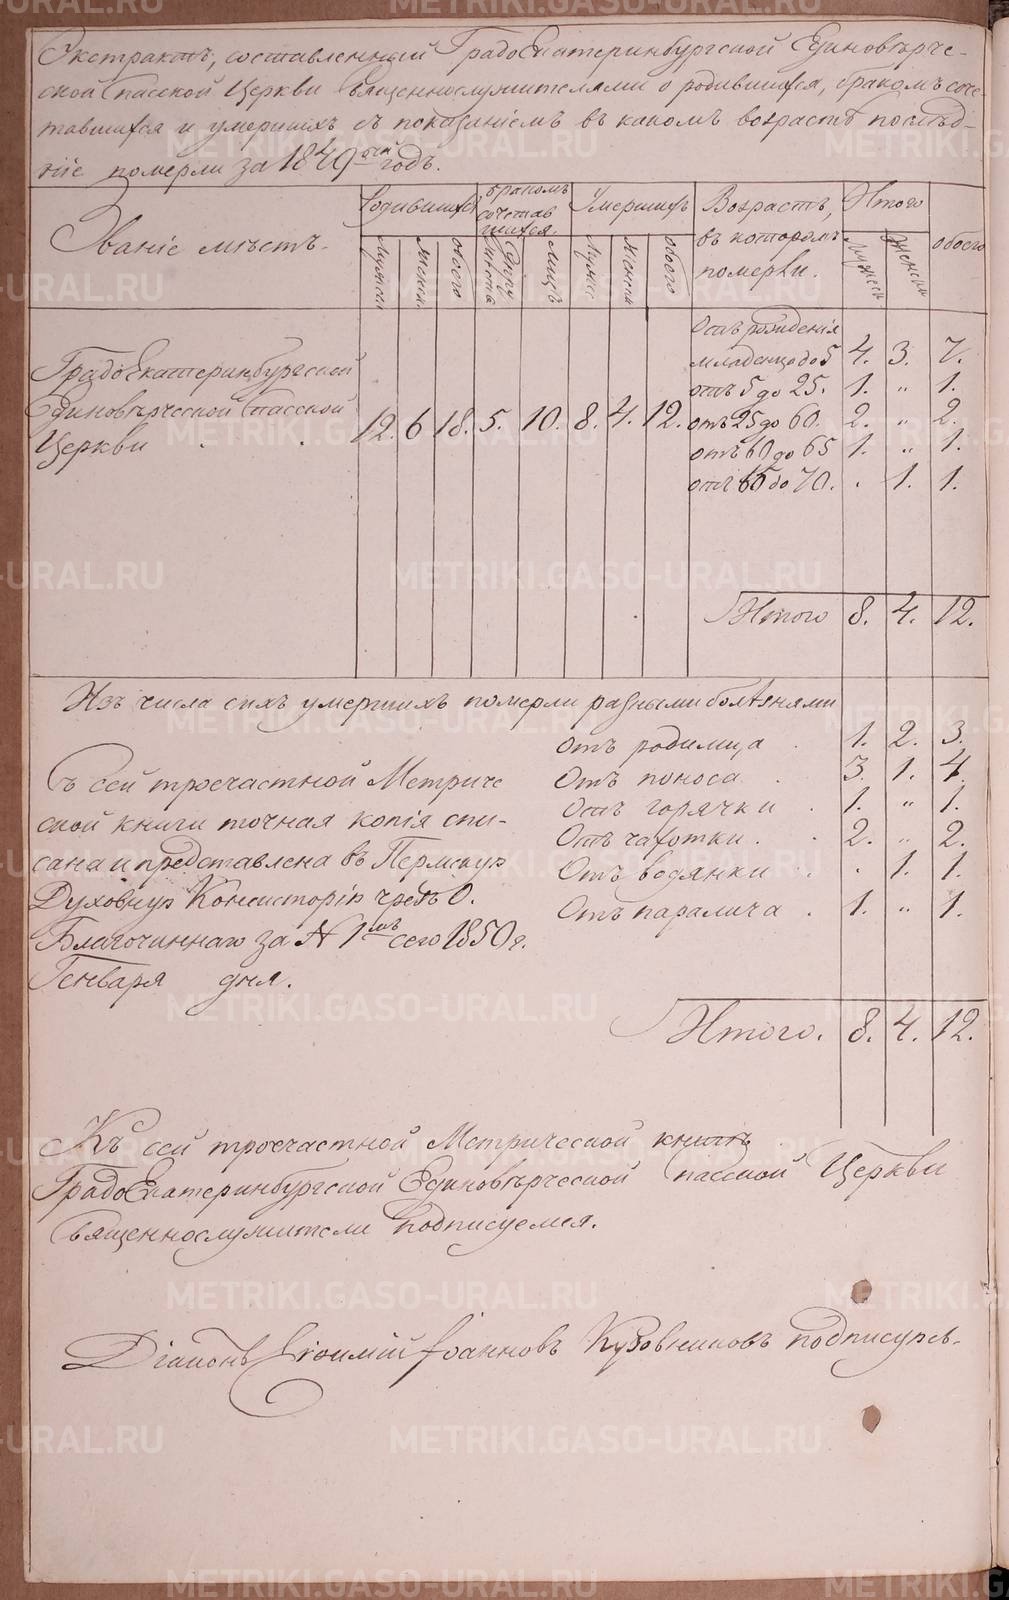 Экстрактъ, составленный ГрадоЕкатеринбургской Единовѣрче-
ской Спасской Церкви Священнослужителями о родившихся, бракомъ соче-
тавшихся и умершихъ съ показаніемъ въ какомъ возрастѣ послѣд-
ніе померли за 1849-ый годъ.
Званіе мѣстъ.
Родившихся
бракомъ сочетав шихся.
Умершихъ
Возрастъ, въ которомъ померли.
Итого
Мужеск. женск. обоего лицъ Мужес Женски обоего Мужеск Женски обоего
Отъ рожденія
младенца до 5 4. 3. 7.
отъ 5 до 25. 1. „ 1.
ГрадоЕкатеринбургской
Единовѣрческой Спасской
Церкви 12. 6 18. 5. 10. 8. 4. 12. отъ 25 до 60. 2. „ 2.
отъ 60 до 65 1. „ 1.
отъ 65 до 70. . 1. 1.
Итого 8. 4. 12.
Изъ числа сихъ умершихъ померли разными болѣзнями
Отъ родимца . 1. 2. 3.
Отъ поноса . 3. 1. 4.
Отъ горячки . 1. „ 1.
Отъ чахотки . 2. „ 2.
Отъ водянки . . 1. 1.
Отъ паралича . 1. „ 1.
Съ сей троечастной Метриче
ской книги точная копія спи-
сана и представлена въ Пермскую
Духовную Консисторію чрезъ О.
Благочиннаго за № 1-мъ сего 1850 г.
Генваря дня.
Итого. 8. 4. 12.
Къ сей троечастной Метрической книгѣ
ГрадоЕкатеринбургской Единовѣрческой Спасской Церкви
Священнослужители подписуемся.
Діаконъ Іоанновъ Кузовниковъ подписуюсь.
METRIKI.GASO-URAL.RU